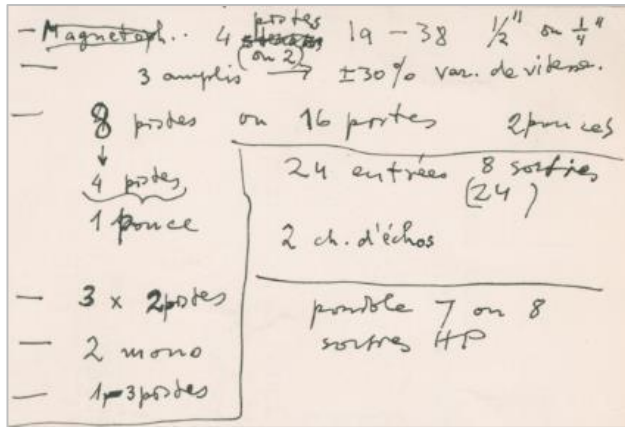 — Magnétoph.. 4 pistes 19 – 38 ½" ou ¼"
(ou 2)
— 3 amplis → ±30% var. de vitesse.
— 8 pistes ou 16 pistes 2 pouces
↓
4 pistes
1 pouce
— 3 x 2 pistes
— 2 mono
— 1 – 3 pistes
24 entrées 8 sorties
(24)
2 ch. d'échos
possible 7 ou 8
sorties HP